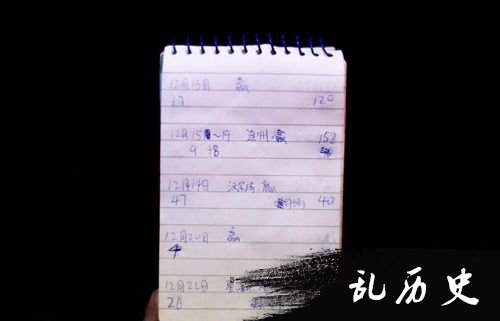 12月13日 赢
17 120
12月15~19 连州 赢 158
9 +8
12月14日 赢
47 40
12月20日 赢
4
12月22日
26
乱历史